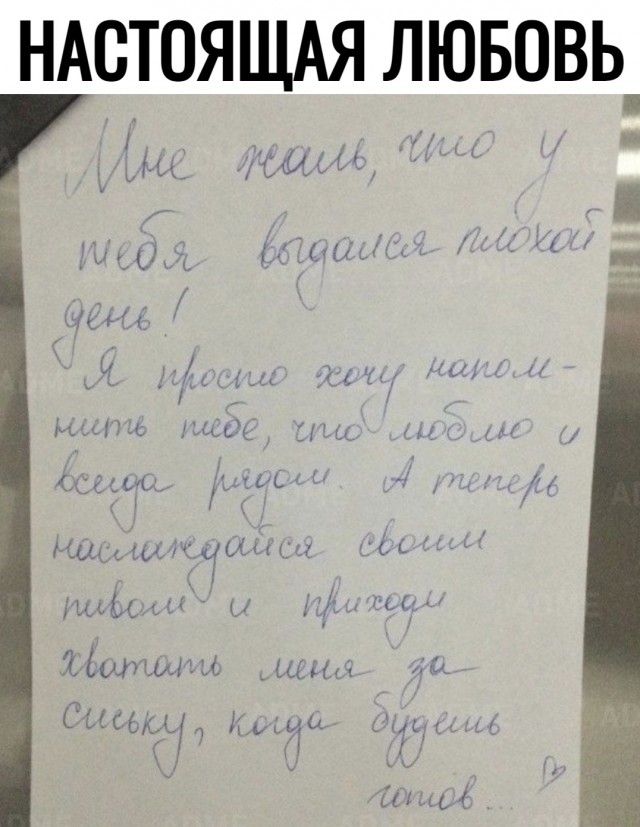 НАСТОЯЩАЯ ЛЮБОВЬ
Мне жаль, что у
тебя выдался плохой
день!
Я просто хочу напом-
нить тебе, что люблю и
всегда рядом. А теперь
наслаждайся своим
пивом и приходи
хватать меня за
сиську, когда будешь
готов...